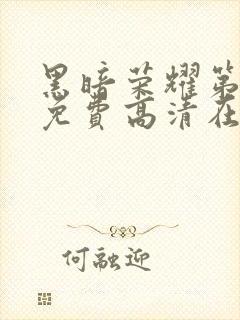 黑暗荣耀第
免费高清在
何融迎